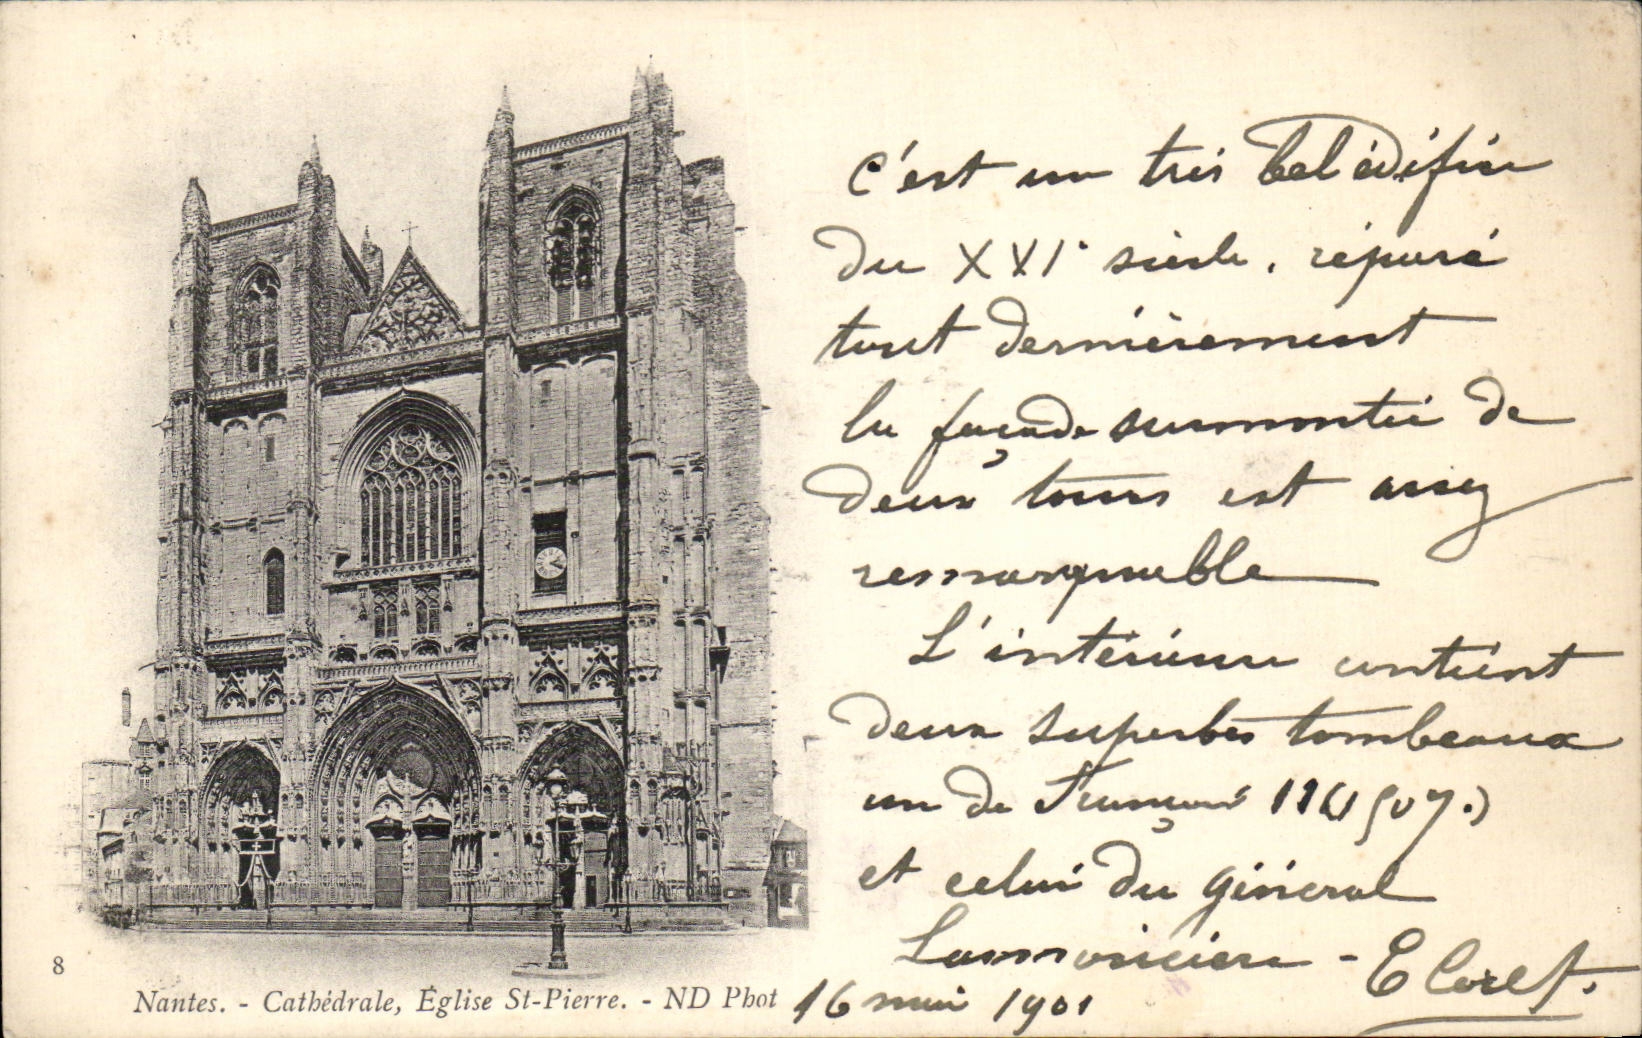 c'est un très bel édifice
du XVI° siècle, réparé
tout dernièrement
la façade surmontée de
deux tours est assez
remarquable
L'intérieur contient
deux superbes tombeaux
un de François II (1507.)
et celui du général
Lamoricière -
16 mai 1901
8
Nantes. - Cathédrale, Église St-Pierre. - ND Phot